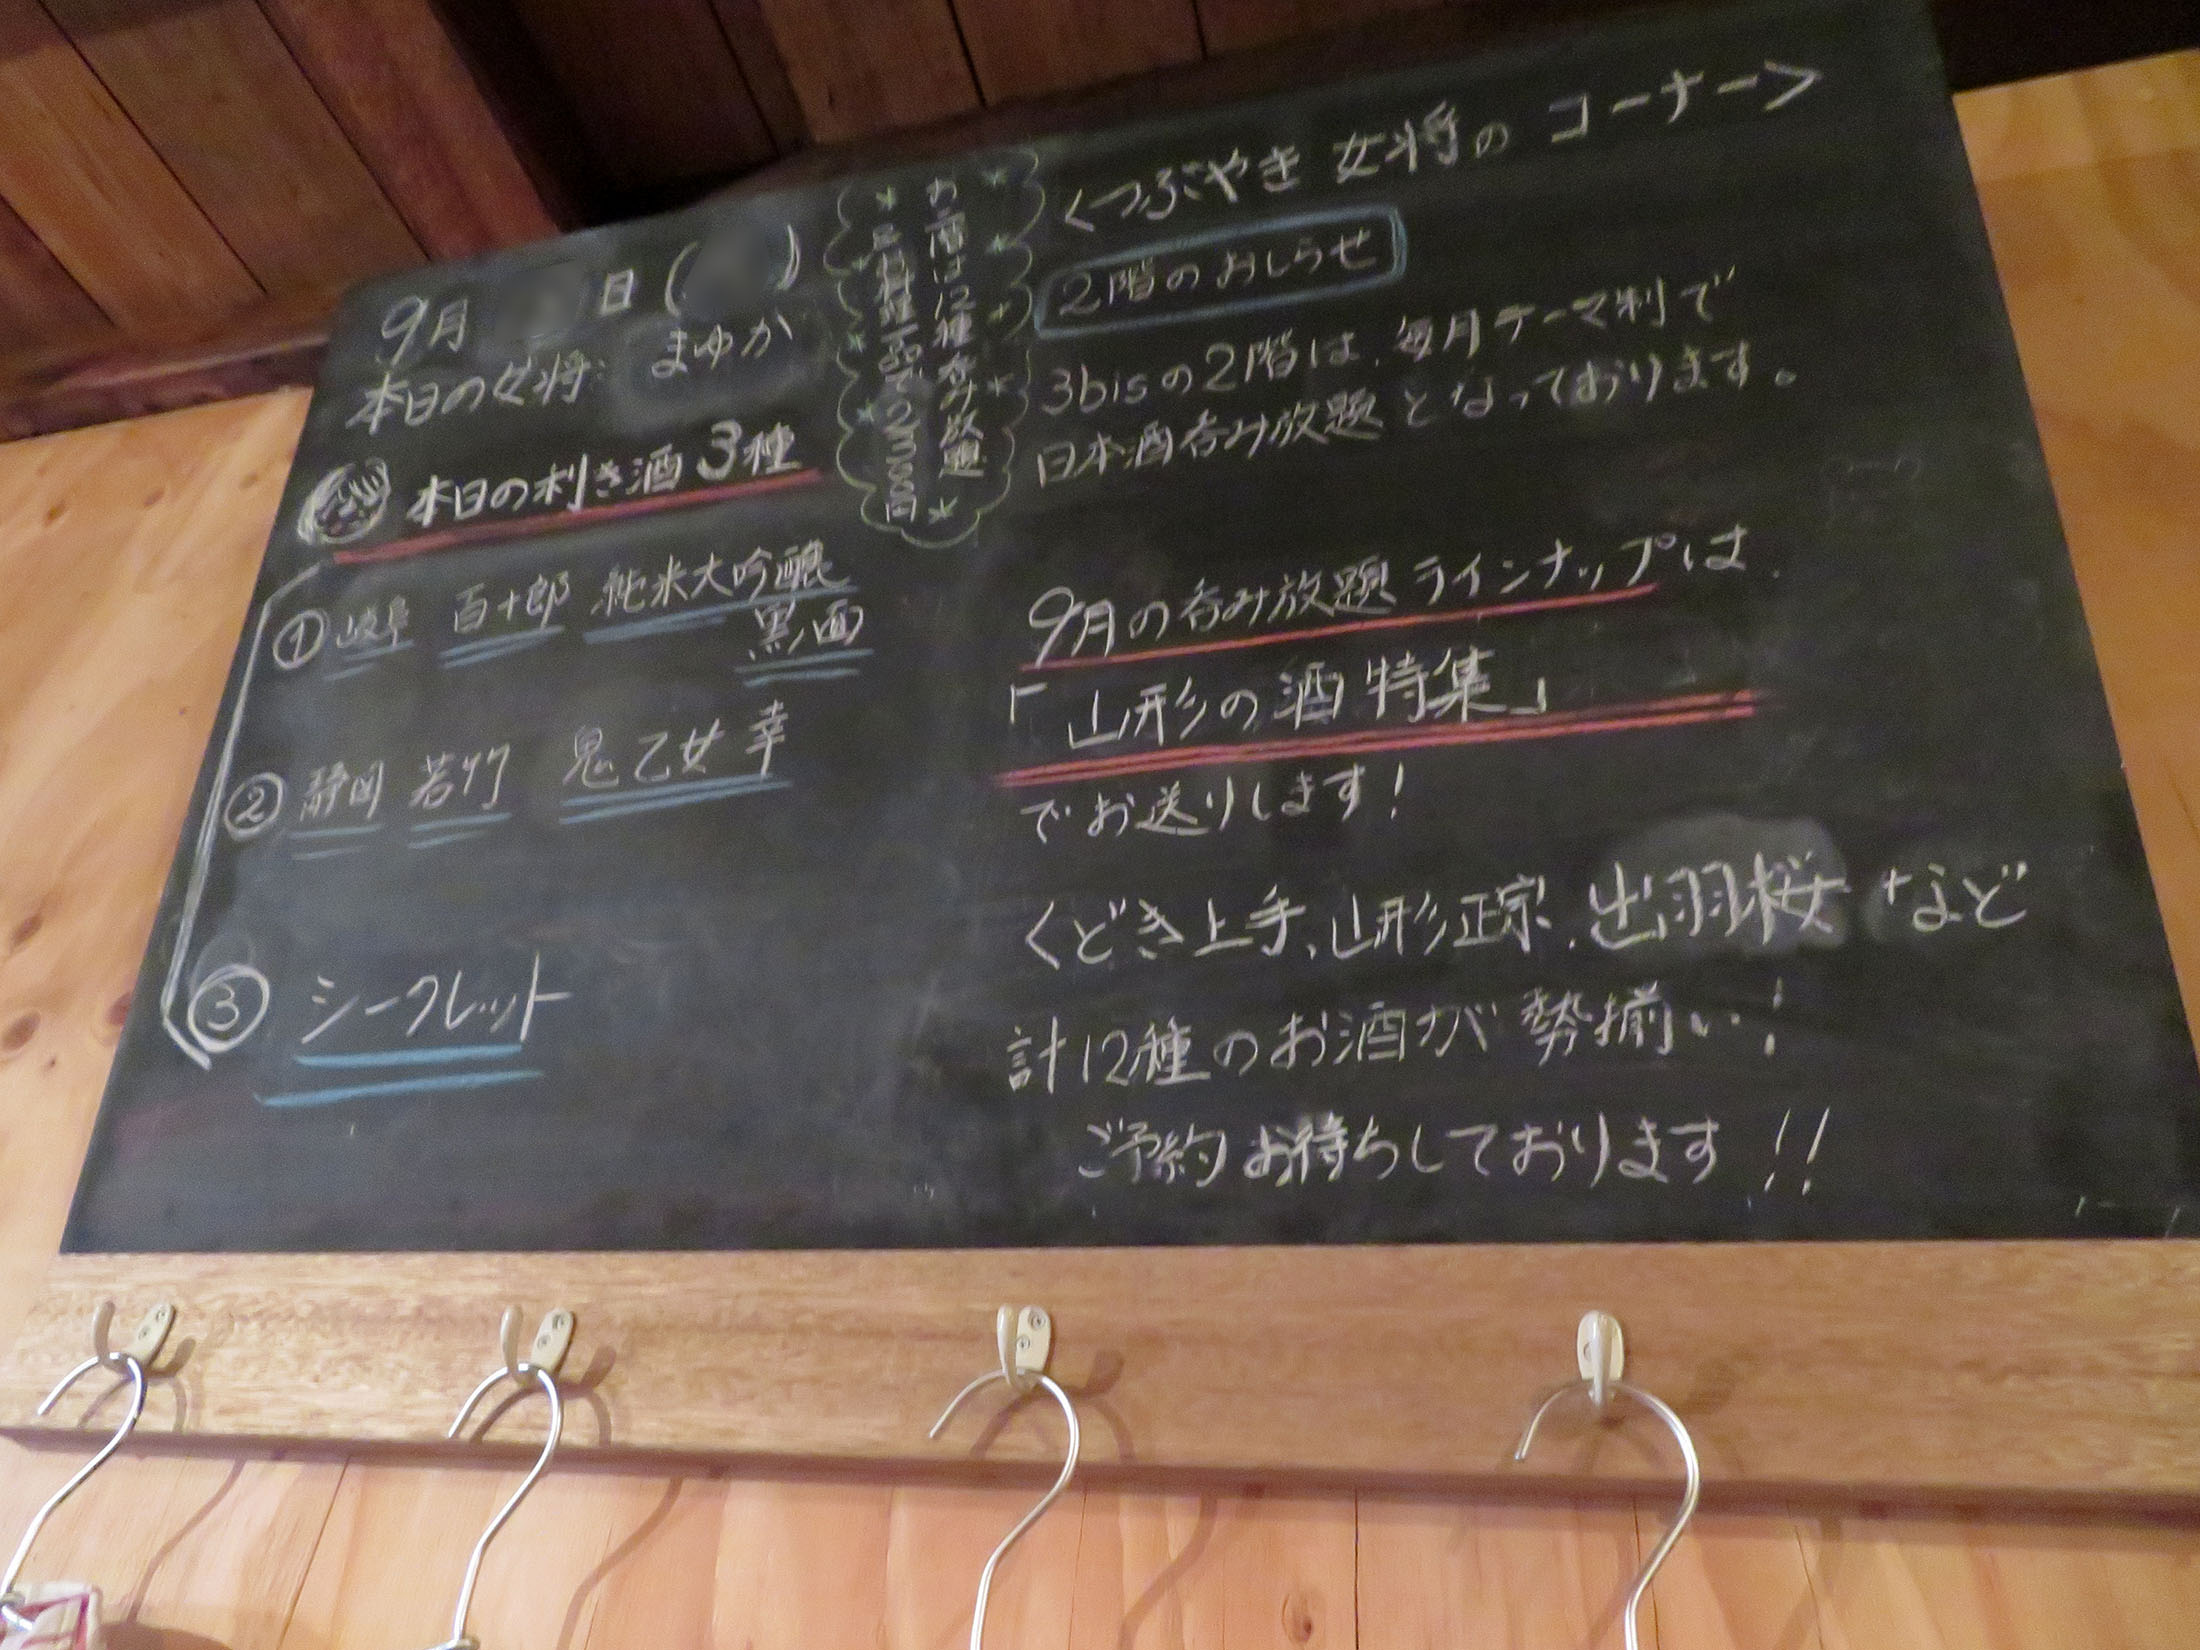 9月 日( )
本日の女将: まゆか
本日の利き酒3種
① 岐阜 百十郎 純米大吟醸
黒面
② 静岡 若竹 鬼乙女 幸
③ シークレット
お二階は12種呑み放題
お料理一品で2500円
<つぶやき女将のコーナー>
2階のおしらせ
3bisの2階は、毎月テーマ制で
日本酒呑み放題となっております。
9月の呑み放題ラインナップは、
「山形の酒特集」
でお送りします!
くどき上手、山形正宗、出羽桜 など
計12種のお酒が勢揃い!
ご予約お待ちしております!!